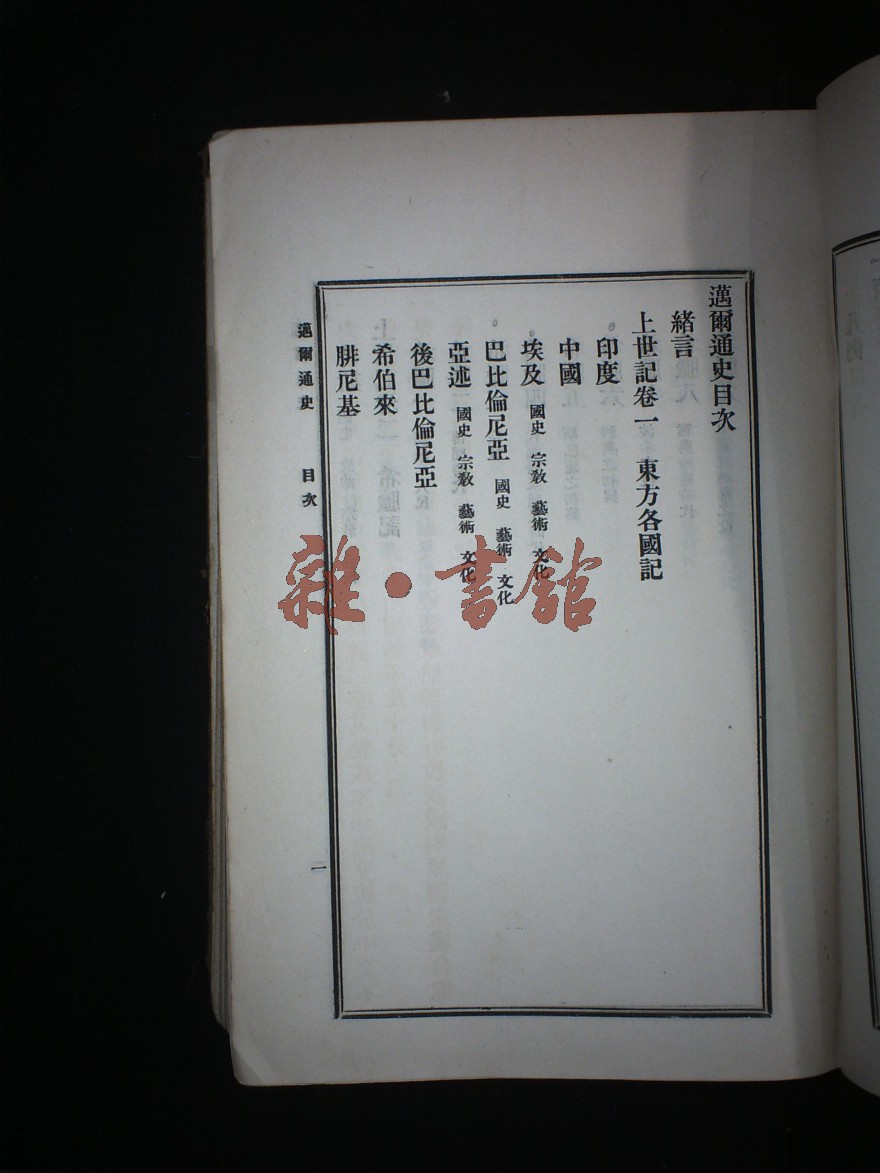 邁爾通史目次
緒言
上世記卷一 東方各國記
印度
中國
埃及 國史 宗教 藝術 文化
巴比倫尼亞 國史 藝術 文化
亞述 國史 宗教 藝術 文化
後巴比倫尼亞
希伯來
腓尼基
邁爾通史 目次 一
雜·書館